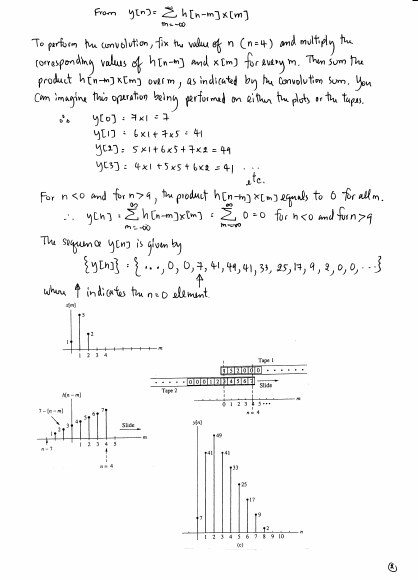 From y[n] = ∞Σm=-∞ h[n-m]x[m]
To perform the convolution, fix the value of n (n=4) and multiply the
corresponding values of h[n-m] and x[m] for every m. Then sum the
product h[n-m]x[m] over m, as indicated by the convolution sum. You
can imagine this operation being performed on either the plots or the tapes.
∴ y[0] = 7x1 = 7
y[1] = 6x1 + 7x5 = 41
y[2] = 5x1 + 6x5 + 7x2 = 49
y[3] = 4x1 + 5x5 + 6x2 = 41 ...
etc.
For n<0 and for n>9, the product h[n-m]x[m] equals to 0 for all m.
∴ y[n] = ∞Σm=-∞ h[n-m]x[m] = ∞Σm=-∞ 0 = 0 for n<0 and for n>9
The sequence y[n] is given by
{y[n]} = {..., 0, 0, 7, 41, 49, 41, 33, 25, 17, 9, 2, 0, 0, ...}
↑
where ↑ indicates the n=0 element.
x[m]
1 5 2
1 2 3 4 m
Tape 1
1 5 2 0 0 0
0 0 0 1 2 3 4 5 6 7 Slide
Tape 2
0 1 2 3 4 5 ... m
n = 4
h[n - m]
7 - [n - m]
1 2 3 4 5 6 7 Slide
1 2 3 4 5 m
n - 7
n = 4
y[n]
7 41 49 41 33 25 17 9 2
1 2 3 4 5 6 7 8 9 10 m
(c)